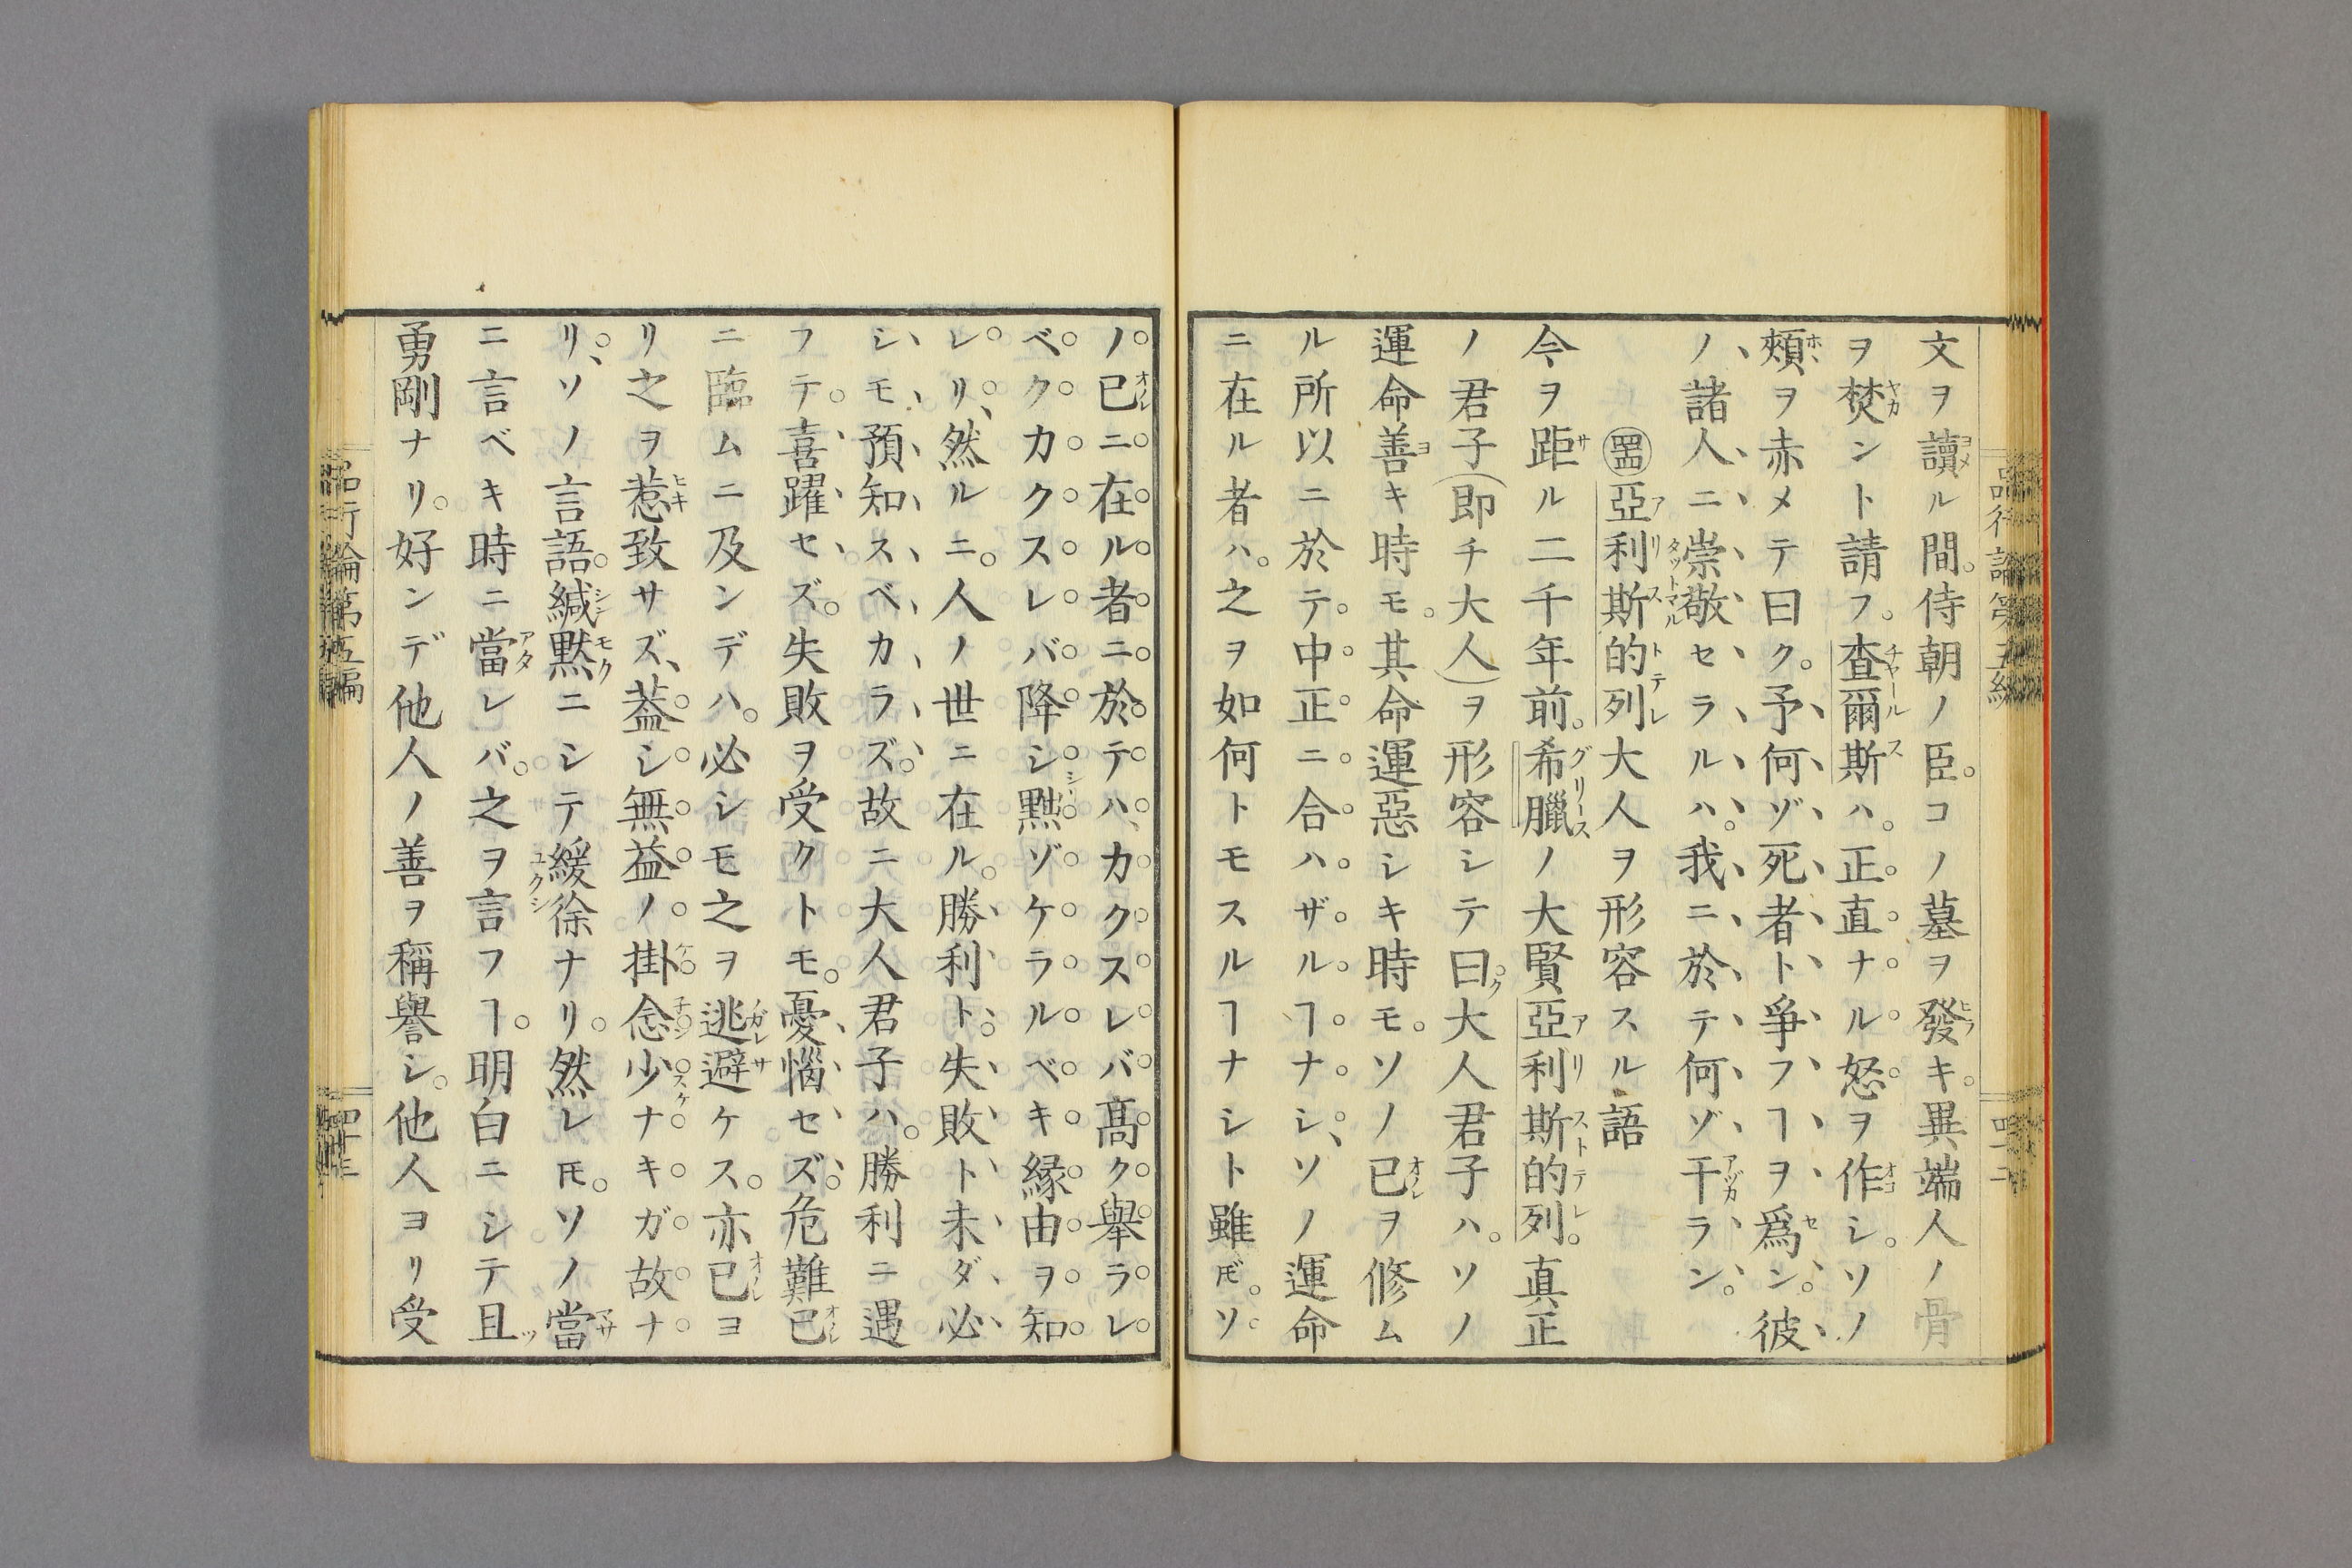 文ヲ讀ル間。侍朝ノ臣。コノ墓ヲ發キ。異端人ノ骨
ヲ焚ント請フ。査爾斯ハ。正直ナル怒ヲ作シ。ソノ
頰ヲ赤メテ曰ク。予何ゾ死者ト爭フヿヲ爲ン。彼
ノ諸人ニ崇敬セラルハ。我ニ於テ何ゾ干ラン。
亞利斯的列大人ヲ形容スル語
今ヲ距ル二千年前。希臘ノ大賢亞利斯的列。真正
ノ君子(即チ大人)ヲ形容シテ曰ク。大人君子ハ。ソノ
運命善キ時モ。其命運惡シキ時モ。ソノ己ヲ修ム
ル所以ニ於テ。中正ニ合ハザルヿナシ。ソノ運命
ニ在ル者ハ。之ヲ如何トモスルヿナシト雖𪜈。ソ
ノ己ニ在ル者ニ於テハ、カクスレバ髙ク舉ラレ
ベクカクスレバ降シ黙ゾケラルベキ縁由ヲ知
レリ、然ルニ。人ノ世ニ在ル。勝利ト。失敗ト未ダ必
シモ預知スベカラズ。故ニ大人君子ハ。勝利ニ遇
フテ。喜躍セズ。失敗ヲ受クトモ。憂惱セズ。危難己
ニ臨ムニ及ンデハ。必シモ之ヲ逃避ケス。亦己ヨ
リ之ヲ惹致サズ、葢シ無益ノ掛念少ナキガ故ナ
リ、ソノ言語。緘黙ニシテ緩徐ナリ。然レ𪜈。ソノ當
ニ言ベキ時ニ當レバ。之ヲ言フヿ。明白ニシテ且
勇剛ナリ。好ンデ他人ノ善ヲ稱譽シ。他人ヨリ受
品行論第五編